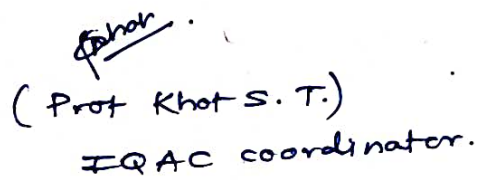 (Prof Khot S. T.)
IQAC coordinator.